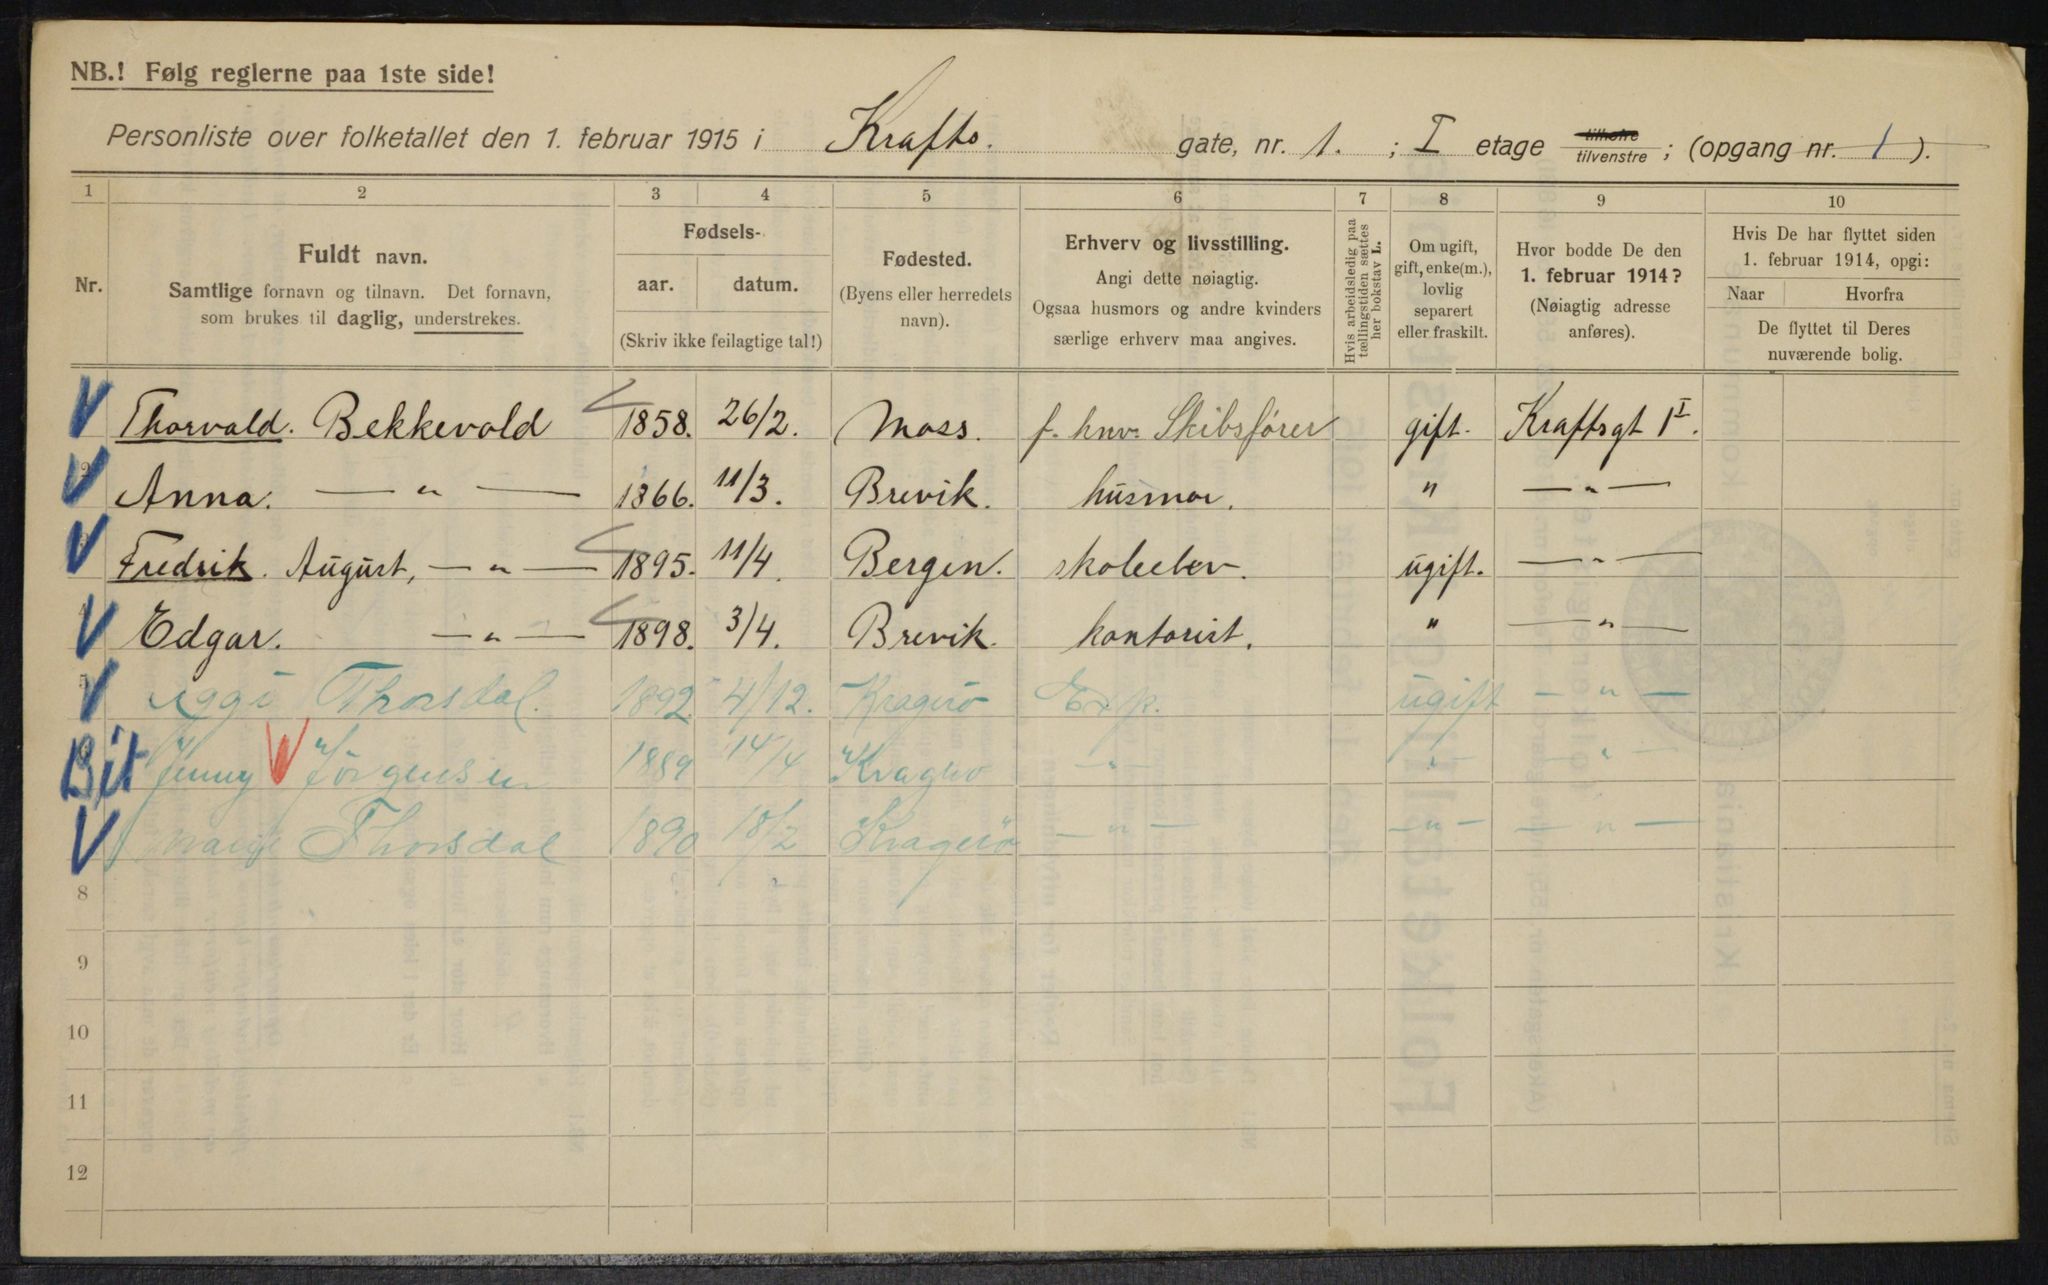 NB.! Følg reglerne paa 1ste side!
Personliste over folketallet den 1. februar 1915 i Krafts. gate, nr. 1. ; I etage tilhøire tilvenstre ; (opgang nr. 1 ).
1 2 3 4 5 6 7 8 9 10
Nr.
Fuldt navn.
Samtlige fornavn og tilnavn. Det fornavn,
som brukes til daglig, understrekes.
Fødsels-
aar. datum.
(Skriv ikke feilagtige tal!)
Fødested.
(Byens eller herredets
navn).
Erhverv og livsstilling.
Angi dette nøiagtig.
Ogsaa husmors og andre kvinders
særlige erhverv maa angives.
Hvis arbeidsledig paa
tællingstiden sættes
her bokstav L.
Om ugift,
gift, enke(m.),
lovlig
separert
eller fraskilt.
Hvor bodde De den
1. februar 1914?
(Nøiagtig adresse
anføres).
Hvis De har flyttet siden
1. februar 1914, opgi:
Naar Hvorfra
De flyttet til Deres
nuværende bolig.
Thorvald. Bekkevold 1858. 26/2. Moss. f. hnv. Skibsfører gift. Kraftsgt 1 I.
Anna. — " — 1866. 11/3. Brevik. husmor. " — " —
Fredrik. August, — " — 1895. 11/4. Bergen. skoleelev. ugift. — " —
Edgar. — " — 1898. 3/4. Brevik. kontorist. " — " —
5 Aggi Thorsdal. 1892 4/12. Kragerö Exp. ugift — " —
Bit Jenny Jörgensen 1889 14/4 Kragerö — " — — " — — " —
Thorsdal 1890 18/2 Kragerö — " — — " — — " —
8
9
10
11
12